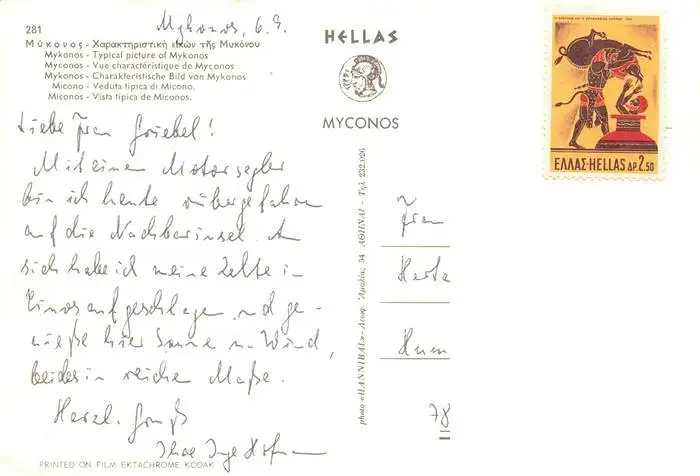 Mykonos, 6.9.
281
Μύκονος - Χαρακτηριστική εἰκών τῆς Μυκόνου
Mykonos - Typical picture of Mykonos
Myconos - Vue charactéristique de Myconos
Mykonos - Charakteristische Bild von Mykonos
Micono - Veduta tipica di Micono.
Miconos - Vista tipica de Miconos.
Liebe Frau Griebel!
Mit einem Motorsegler
bin ich heute rübergefahren
auf die Nachbarinsel. An
sich habe ich meine Zelte in
Tinos aufgeschlagen und ge-
nieße hier Sonne u. Wind,
beides in reiche Maße.
Herzl. Gruß
Ihre Inge Hofmann
PRINTED ON FILM EKTACHROME KODAK
HELLAS
MYCONOS
photo «HANNIBAL» - Λεωφ. Ἀμαλίας 54 ΑΘΗΝΑΙ - Τηλ. 232.026
Frau
Herta
Hum
78
ΕΛΛΑΣ-HELLAS ΔΡ 2.50